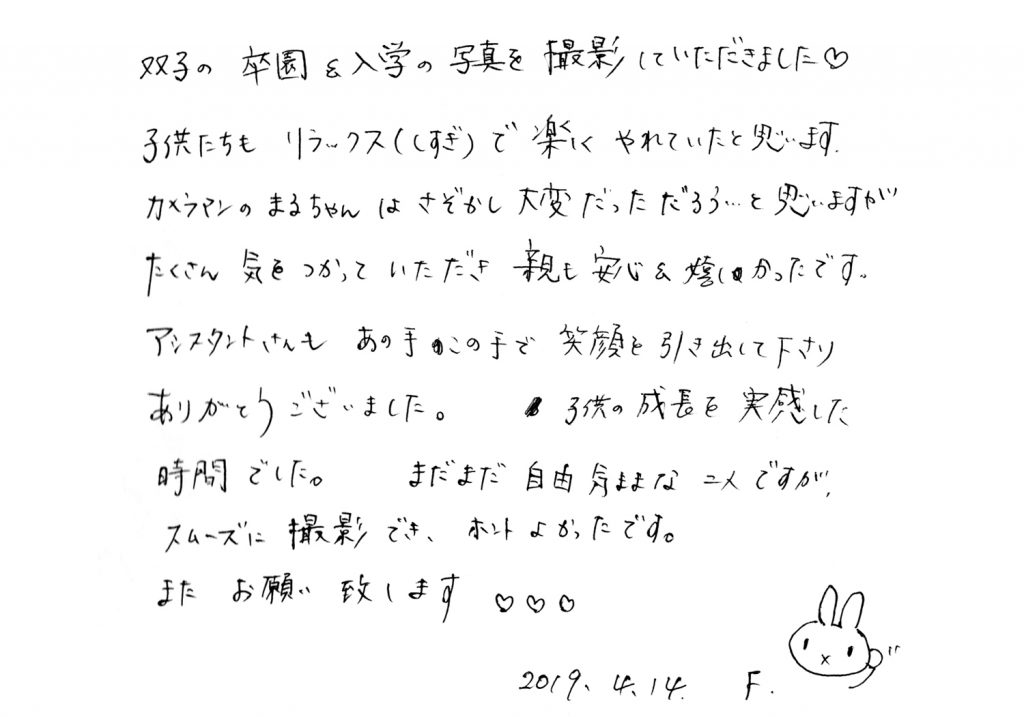 双子の 卒園 & 入学の 写真を 撮影していただきました♡
子供たちも リラックス(しすぎ)で 楽しく やれていたと思います.
カメラマンの まるちゃん は さぞかし 大変 だった だろう…と 思いますが
たくさん 気をつかって いただき 親も 安心 & 嬉しかったです。
アシスタントさんも あの手 この手で 笑顔を 引き出して下さり
ありがとう ございました。 子供の 成長を 実感した
時間 でした。 まだまだ 自由 気ままな 二人ですが,
スムーズに 撮影 でき、 ホント よかったです。
また お願い 致します ♡♡♡
2019. 4. 14. F.